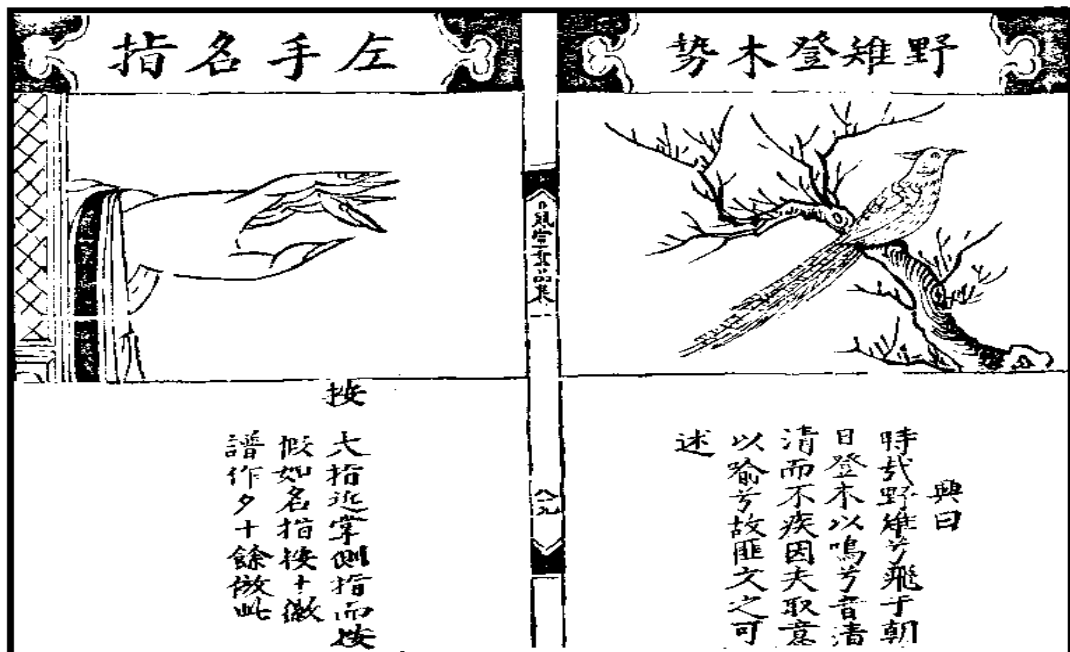 野雉登木勢
興曰
時哉野雉兮飛于朝
日登木以鳴兮音清
清而不疾因夫取意
以喻兮故匪文之可
述
風宣玄品
八九
左手名指
按
大指近掌側指而按
假如名指按十徽
譜作夕十餘倣此